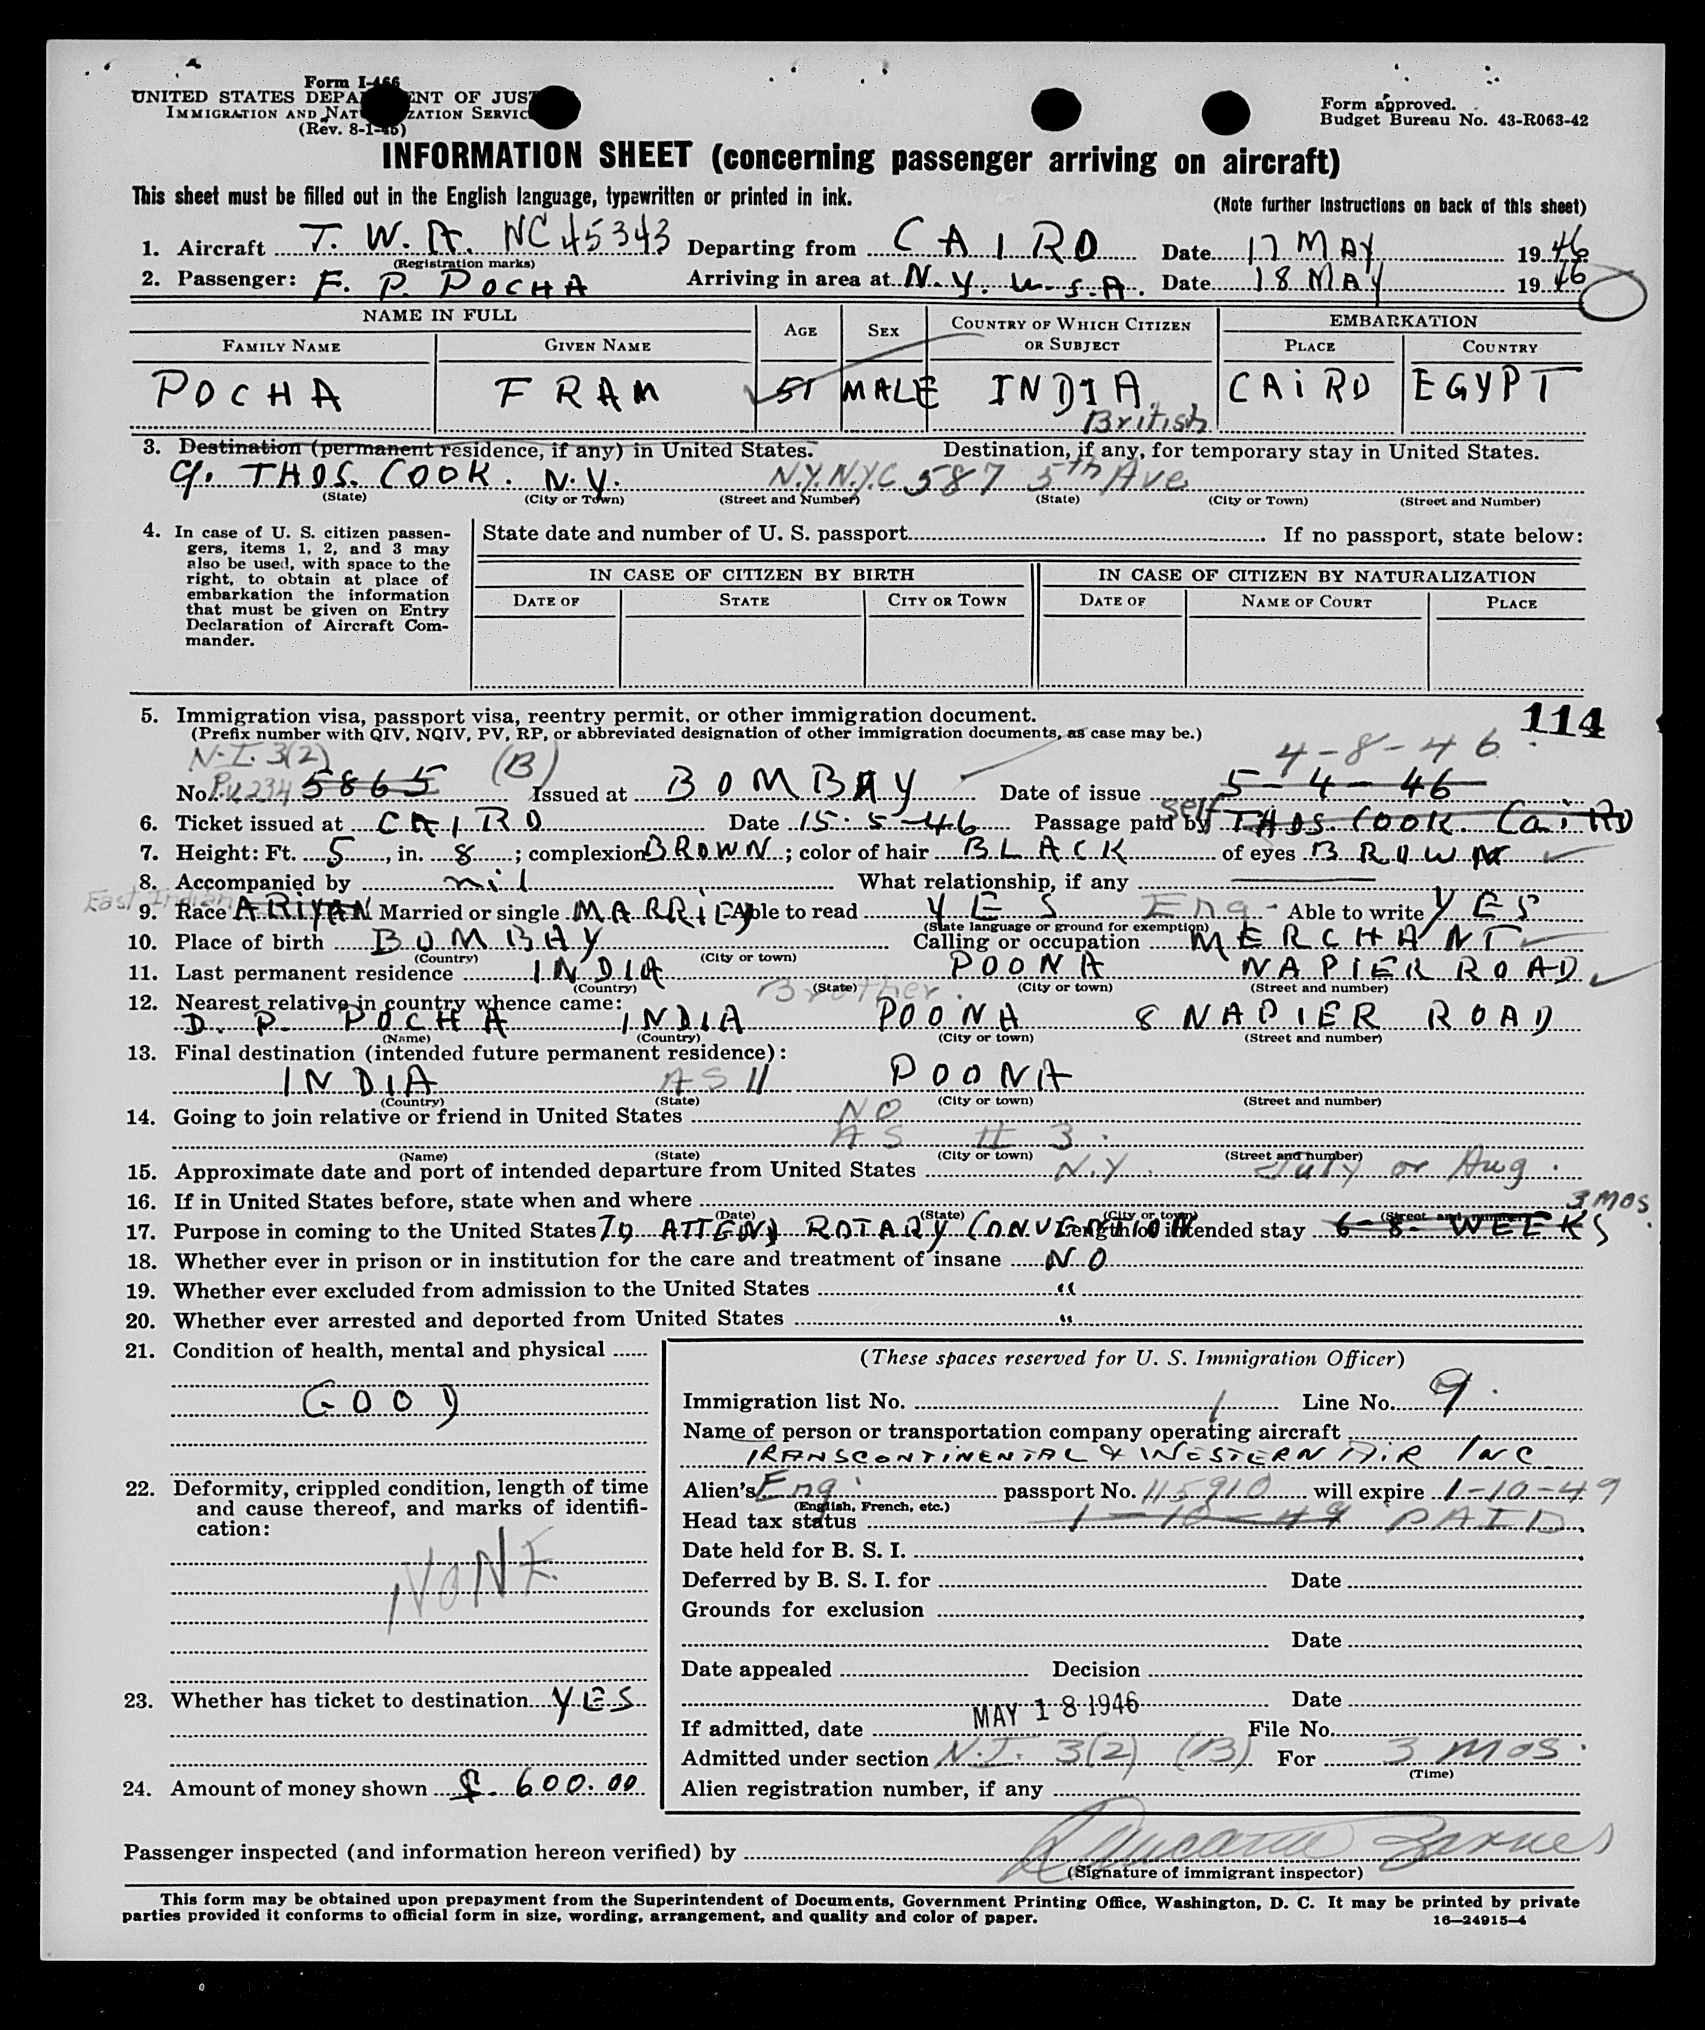 Form I-466
UNITED STATES DEPARTMENT OF JUSTICE
IMMIGRATION AND NATURALIZATION SERVICE
(Rev. 8-1-45)
Form approved.
Budget Bureau No. 43-R063-42
INFORMATION SHEET (concerning passenger arriving on aircraft)
This sheet must be filled out in the English language, typewritten or printed in ink.
(Note further instructions on back of this sheet)
1. Aircraft T. W. A. NC 45343 Departing from CAIRO Date 17 MAY 1946
(Registration marks)
2. Passenger: F. P. POCHA Arriving in area at N.Y. U.S.A. Date 18 MAY 1946
NAME IN FULL AGE SEX COUNTRY OF WHICH CITIZEN OR SUBJECT EMBARKATION
FAMILY NAME GIVEN NAME PLACE COUNTRY
POCHA FRAM 51 MALE INDIA CAIRO EGYPT
British
3. Destination (permanent residence, if any) in United States. Destination, if any, for temporary stay in United States.
c/. THOS. COOK. N.Y. N.Y. N.Y.C 587 5th Ave
(State) (City or Town) (Street and Number) (State) (City or Town) (Street and Number)
4. In case of U. S. citizen passen-
gers, items 1, 2, and 3 may
also be used, with space to the
right, to obtain at place of
embarkation the information
that must be given on Entry
Declaration of Aircraft Com-
mander.
State date and number of U. S. passport If no passport, state below:
IN CASE OF CITIZEN BY BIRTH IN CASE OF CITIZEN BY NATURALIZATION
DATE OF STATE CITY OR TOWN DATE OF NAME OF COURT PLACE
5. Immigration visa, passport visa, reentry permit, or other immigration document.
114
(Prefix number with QIV, NQIV, PV, RP, or abbreviated designation of other immigration documents, as case may be.)
N.I. 3(2) (B) 4-8-46
No. P.V. 234 5865 Issued at BOMBAY Date of issue 5-4-46
6. Ticket issued at CAIRO Date 15-5-46 Passage paid by self THOS. COOK. CAIRO
7. Height: Ft. 5, in. 8; complexion BROWN; color of hair BLACK of eyes BROWN
8. Accompanied by nil What relationship, if any
East Indian
9. Race ARIYAN Married or single MARRIED Able to read YES Eng - Able to write YES
(State language or ground for exemption)
10. Place of birth BOMBAY Calling or occupation MERCHANT
(Country) (City or town)
11. Last permanent residence INDIA POONA NAPIER ROAD
(Country) (State) (City or town) (Street and number)
12. Nearest relative in country whence came: Brother.
D. P. POCHA INDIA POONA 8 NAPIER ROAD
(Name) (Country) (City or town) (Street and number)
13. Final destination (intended future permanent residence):
INDIA AS 11 POONA
(Country) (State) (City or town) (Street and number)
14. Going to join relative or friend in United States NO
AS # 3.
(Name) (State) (City or town) (Street and number)
15. Approximate date and port of intended departure from United States N.Y. July or Aug.
16. If in United States before, state when and where
(Date) (State) (City or town) (Street and number)
3 mos.
17. Purpose in coming to the United States TO ATTEND ROTARY CONVENTION Length of intended stay 6-8- WEEKS
18. Whether ever in prison or in institution for the care and treatment of insane NO
19. Whether ever excluded from admission to the United States "
20. Whether ever arrested and deported from United States "
21. Condition of health, mental and physical
GOOD
22. Deformity, crippled condition, length of time
and cause thereof, and marks of identifi-
cation:
NONE.
23. Whether has ticket to destination YES
24. Amount of money shown $. 600.00
(These spaces reserved for U. S. Immigration Officer)
Immigration list No. 1 Line No. 9.
Name of person or transportation company operating aircraft
TRANSCONTINENTAL & WESTERN AIR INC
Alien's Eng. passport No. 115910 will expire 1-10-49
(English, French, etc.)
Head tax status 1-10-49 PAID
Date held for B. S. I.
Deferred by B. S. I. for Date
Grounds for exclusion
Date
Date appealed Decision
Date
If admitted, date MAY 18 1946 File No.
Admitted under section N.I. 3(2) (B) For 3 mos.
(Time)
Alien registration number, if any
Passenger inspected (and information hereon verified) by
(Signature of immigrant inspector)
This form may be obtained upon prepayment from the Superintendent of Documents, Government Printing Office, Washington, D. C. It may be printed by private
parties provided it conforms to official form in size, wording, arrangement, and quality and color of paper.
16—24915-4